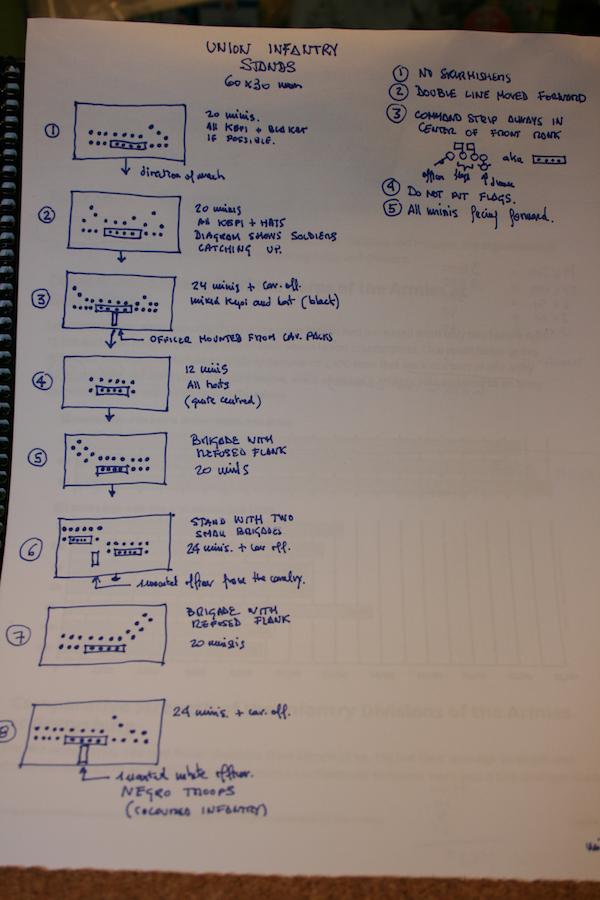 UNION INFANTRY
STANDS
60x30 mm
① NO SKIRMISHERS
② DOUBLE LINE MOVED FORWARD
③ COMMAND STRIP ALWAYS IN
CENTER OF FRONT RANK
aka
officer flags drummer
④ DO NOT PUT FLAGS.
⑤ All minis facing forward.
①
20 minis.
All KEPI + BLANKET
IF POSSIBLE.
direction of march
②
20 minis
All KEPI + HATS
DIAGRAM SHOWS SOLDIERS
CATCHING UP.
③
24 minis + cav. off.
mixed Kepi and hat (black)
OFFICER MOUNTED FROM CAV. PACKS
④
12 minis
All hats
(quite centred)
⑤
BRIGADE WITH
REFUSED FLANK
20 minis
⑥
STAND WITH TWO
SMALL BRIGADES
24 minis. + cav off.
1 mounted officer from the cavalry.
⑦
BRIGADE WITH
REFUSED FLANK
20 minis
⑧
24 minis. + cav. off.
1 mounted white officer.
NEGRO TROOPS
(COLOURED INFANTRY)
of the Armies
Infantry Divisions of the Armies